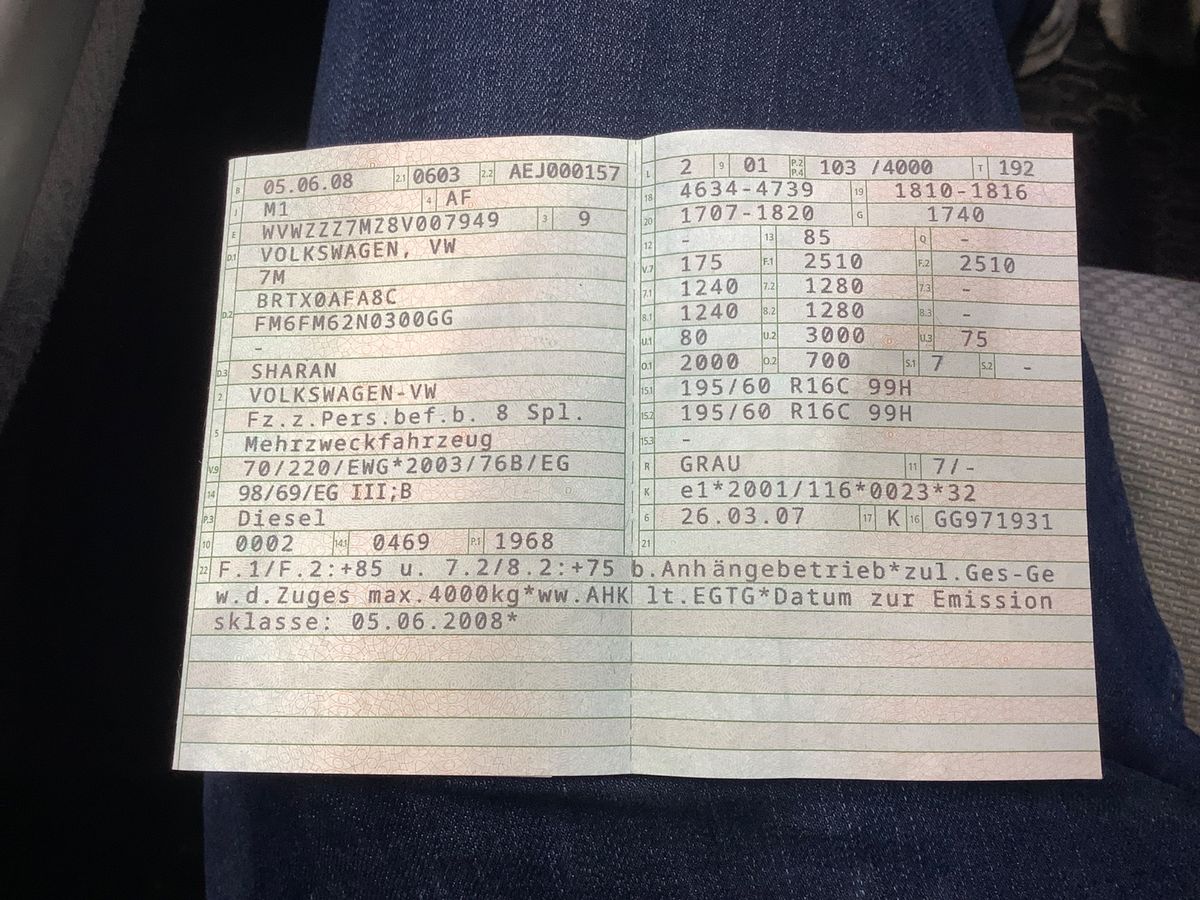 B 05.06.08 2.1 0603 2.2 AEJ000157
J M1 4 AF
E WVWZZZ7MZ8V007949 3 9
D.1 VOLKSWAGEN, VW
7M
D.2 BRTX0AFA8C
FM6FM62N0300GG
-
D.3 SHARAN
2 VOLKSWAGEN-VW
5 Fz.z.Pers.bef.b. 8 Spl.
Mehrzweckfahrzeug
V.9 70/220/EWG*2003/76B/EG
14 98/69/EG III;B
P.3 Diesel
10 0002 14.1 0469 P.1 1968
L 2 9 01 P.2 P.4 103 /4000 T 192
18 4634-4739 19 1810-1816
20 1707-1820 G 1740
12 - 13 85 Q -
V.7 175 F.1 2510 F.2 2510
7.1 1240 7.2 1280 7.3 -
8.1 1240 8.2 1280 8.3 -
U.1 80 U.2 3000 U.3 75
O.1 2000 O.2 700 S.1 7 S.2 -
15.1 195/60 R16C 99H
15.2 195/60 R16C 99H
15.3 -
R GRAU 11 7/-
K e1*2001/116*0023*32
6 26.03.07 17 K 16 GG971931
21
22 F.1/F.2:+85 u. 7.2/8.2:+75 b.Anhängebetrieb*zul.Ges-Ge
w.d.Zuges max.4000kg*ww.AHK lt.EGTG*Datum zur Emission
sklasse: 05.06.2008*